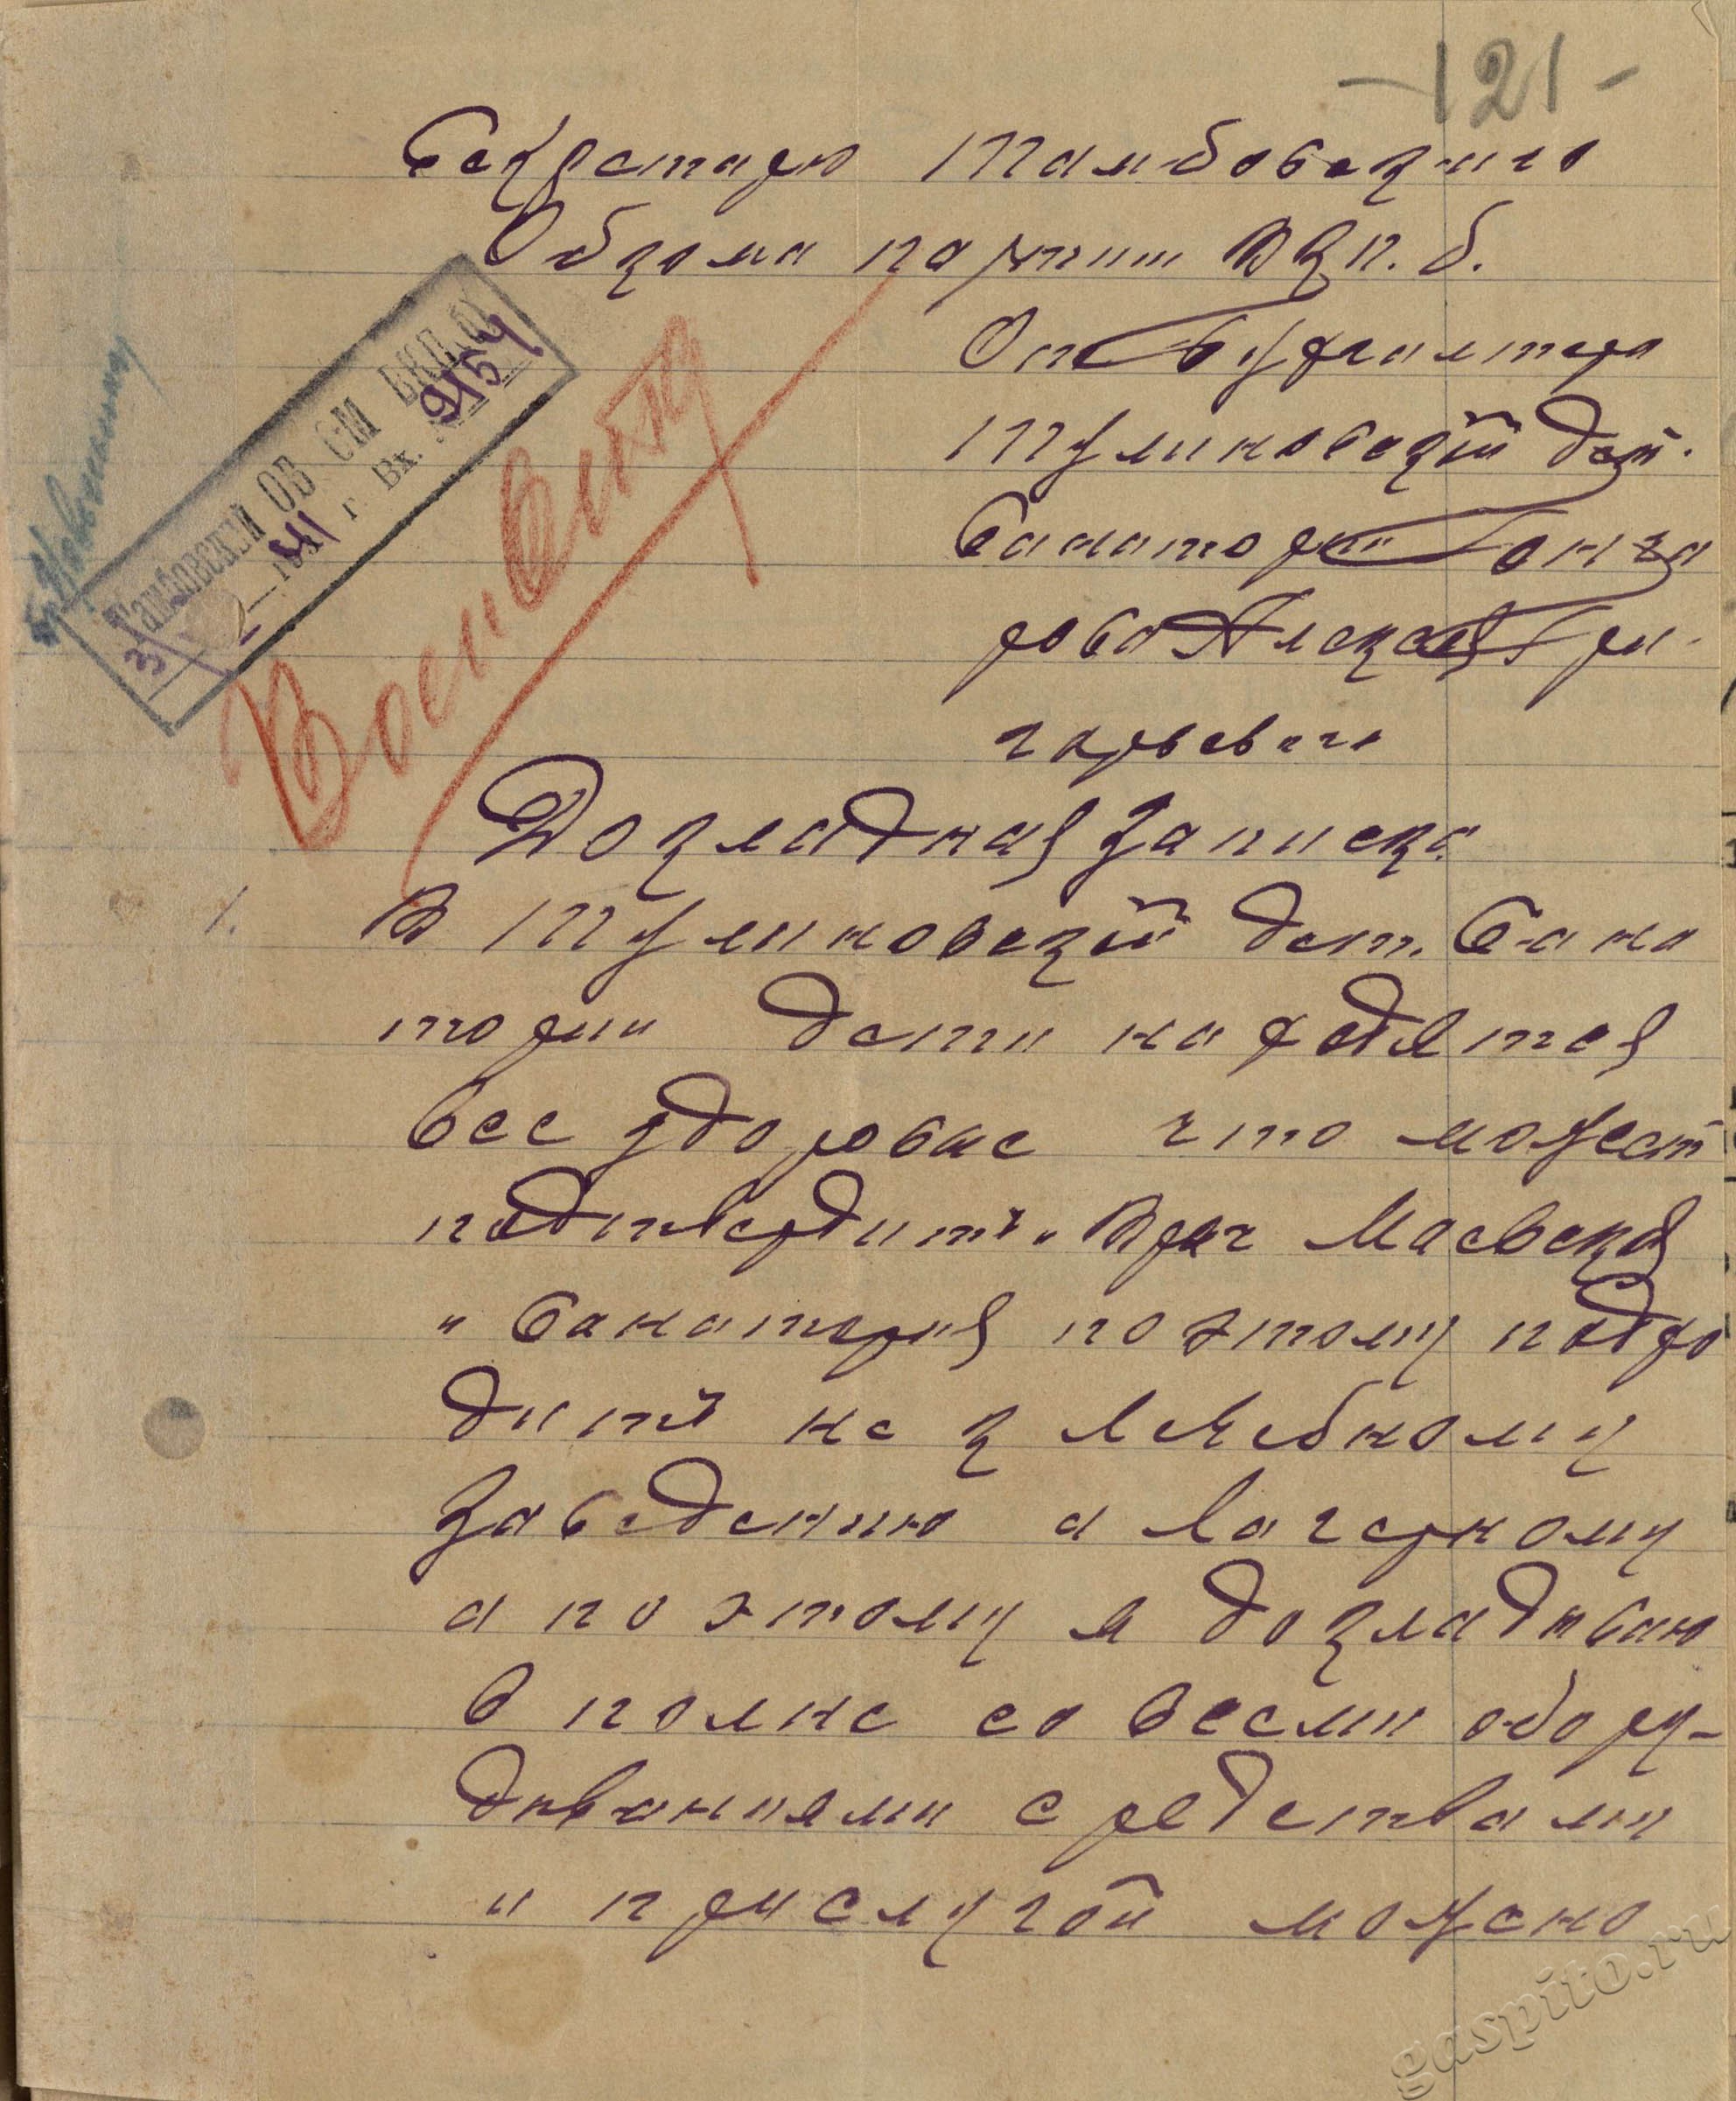 -121-
Секретарю Тамбовскаго
Обкома партии ВКП.б.
От бухгалтера
Тулиновской дет.
Санатории Гонча
рова Алексея Гри-
горьевича
Тамбовский ОБКОМ ВКП(б)
1941 г. Вх. № 9154
Военотд
Докладная записка
1. В Тулиновской дет. Сана
тории дети находятся
все здоровые что может
подтвердить Врач Маевская
и Санатория поэтому подхо
дить не к лечебному
Заведению а лагерному
а по этому я докладоваю
в полне со всеми обору-
дованиями средствами
и прислугой можно
gaspito.ru